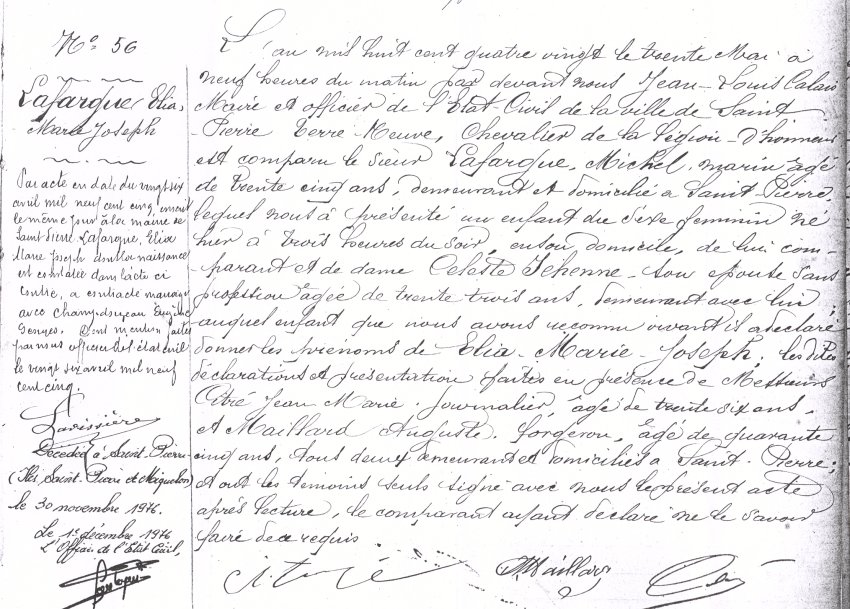 N° 56
Lafargue, Elia,
Marie Joseph
Par acte en date du vingt six
avril mil neuf cent cinq, inscrit
le même jour à la mairie de
Saint Pierre Lafargue, Elia
Marie Joseph dont la naissance
est constatée dans l'acte ci
contre, a contracté mariage
avec Champdoyeau Eugène
Georges. Dont mention faite
par nous officier de l'état civil
le vingt six avril mil neuf
cent cinq.
Lavissière
Décédée à Saint-Pierre
(Iles Saint-Pierre et Miquelon)
le 30 novembre 1976.
Le 1er décembre 1976
L'Officier de l'Etat Civil,
L'an mil huit cent quatre vingt le trente Mai à
neuf heures du matin par devant nous Jean-Louis Calais
Maire et officier de l'Etat Civil de la ville de Saint
-Pierre Terre-Neuve, Chevalier de la Légion-d'honneur
est comparu le sieur Lafargue, Michel, marin âgé
de trente cinq ans, demeurant et domicilié à Saint-Pierre,
lequel nous à présenté un enfant du sexe féminin né
hier à trois heures du soir, en son domicile, de lui com-
-parant et de dame Celeste Jehenne son epouse sans
profession âgée de trente trois ans, demeurant avec lui
auquel enfant que nous avons reconnu vivant il a déclaré
donner les prénoms de Elia-Marie-Joseph, les dites
déclarations et présentation faites en présence de Messieurs
Citré Jean Marie. Journalier, âgé de trente six ans,
et Maillard Auguste. forgeron, âgé de quarante
cinq ans, tous deux demeurant et domiciliés à Saint-Pierre;
et ont les témoins seuls signé avec nous le présent acte
après lecture, le comparant ayant déclaré ne le savoir
faire de ce requis
Citré Maillard